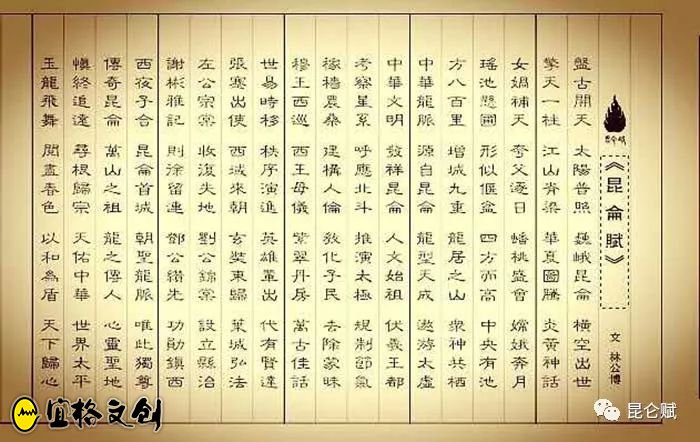 《昆侖賦》
文 林公博
盤古開天 太陽普照 巍峨昆侖 橫空出世
擎天一柱 江山脊梁 華夏圖騰 炎黃神話
女媧補天 夸父逐日 蟠桃盛會 嫦娥奔月
瑤池懸圃 形似偃盆 四方而高 中央有池
方八百里 增城九重 龍居之山 衆神共栖
中華龍脈 源自昆侖 龍型天成 遨游太虛
中華文明 發祥昆侖 人文始祖 伏羲王都
考察星系 呼應北斗 推演太極 規制節氣
稼穡農桑 建構人倫 教化子民 去除蒙昧
穆王西巡 西王母儀 紫翠丹房 萬古佳話
世易時移 秩序演進 英雄輩出 代有賢達
張騫出使 西域來朝 玄奘東歸 葉城弘法
左公宗棠 收復失地 劉公錦棠 設立縣治
謝彬雅記 則徐留連 鄧公纘先 功勛鎮西
西夜子合 昆侖首城 朝聖龍脈 唯此獨尊
傳奇昆侖 萬山之祖 龍之傳人 心靈聖地
慎終追遠 尋根歸宗 天佑中華 世界太平
玉龍飛舞 閱盡春色 以和爲盾 天下歸心
宜格文创
昆仑赋